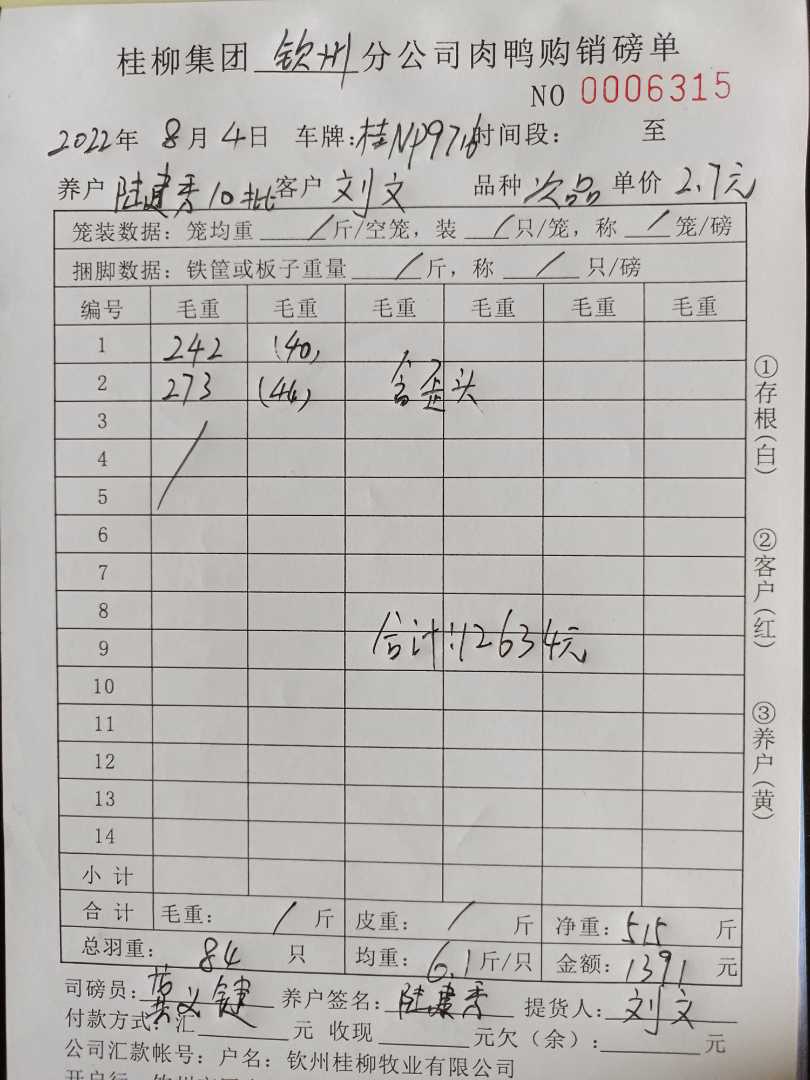 桂柳集团 钦州 分公司肉鸭购销磅单
NO 0006315
2022年 8月4日 车牌:桂NP9716 时间段: 至
养户 陆建秀10批 客户 刘文 品种 次品 单价 2.7元
笼装数据: 笼均重 / 斤/空笼, 装 / 只/笼, 称 / 笼/磅
捆脚数据: 铁筐或板子重量 / 斤, 称 / 只/磅
编号 毛重 毛重 毛重 毛重 毛重 毛重
1 242 (40)
2 273 (44) 含歪头
3
4
5
6
7
8
9 合计:12634元
10
11
12
13
14
小计
合计 毛重: / 斤 皮重: / 斤 净重: 515 斤
总羽重: 84 只 均重: 6.1 斤/只 金额: 1391 元
司磅员: 黄义健 养户签名: 陆建秀 提货人: 刘文
付款方式: 汇 元 收现 元欠(余): 元
公司汇款帐号: 户名: 钦州桂柳牧业有限公司
①存根(白)
②客户(红)
③养户(黄)